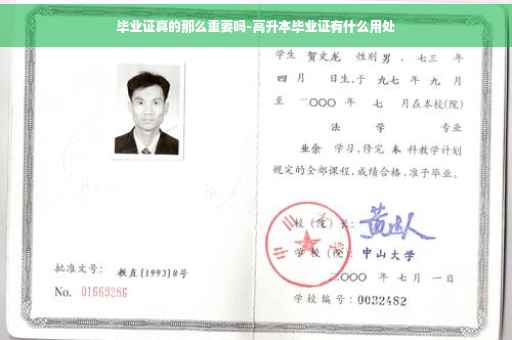 毕业证真的那么重要吗-高升本毕业证有什么用处
学生 贺文龙 性别 男 、七三 年
四 月 日生,于 九七 年 九 月
至 二〇〇〇 年 七 月在本校(院)
法 学 专业
业余 学习,修完 本 科教学计划
规定的全部课程,成绩合格,准予毕业。
校(院)长:
学校(院): 中山大学
二〇〇〇 年 七 月 一 日
批准文号: 教直[1993]8号
No. 01669286
学校编号: 0032482